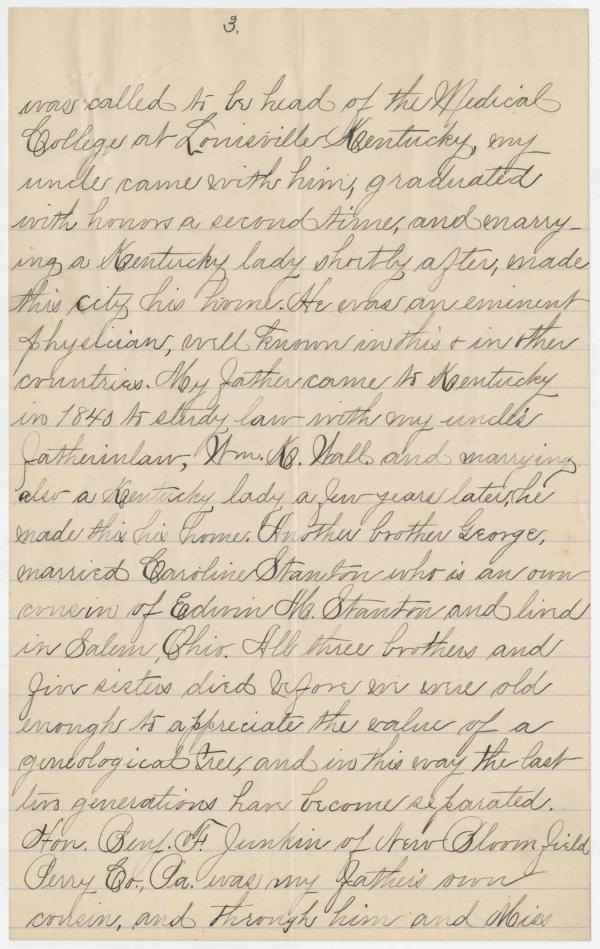 3.
was called to be head of the Medical
College at Louisville Kentucky, my
uncle came with him, graduated
with honors a second time, and marry-
ing a Kentucky lady shortly after, made
this city his home. He was an eminent
physician, well known in this & in other
countries. My father came to Kentucky
in 1840 to study law with my uncle's
fatherinlaw, Wm. K. Wall and marrying
also a Kentucky lady a few years later, he
made this his home. Another brother George,
married Caroline Stanton who is an own
cousin of Edwin M. Stanton and lived
in Salem, Ohio. All three brothers and
five sisters died before we were old
enough to appreciate the value of a
geneological tree, and in this way the last
two generations have become separated.
Hon. Benj. F. Junkin of New Bloomfield
Perry Co., Pa. was my father's own
cousin, and through him and Miss